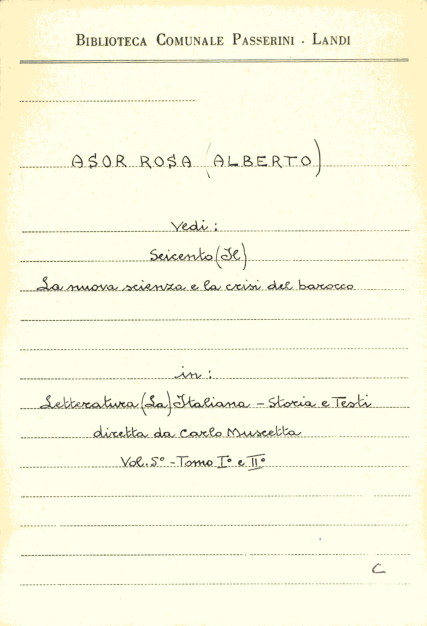 BIBLIOTECA COMUNALE PASSERINI - LANDI
ASOR ROSA (ALBERTO)
Vedi:
Seicento (Il)
La nuova scienza e la crisi del barocco
in:
Letteratura (La) Italiana - Storia e Testi
diretta da Carlo Muscetta
Vol. 5° - Tomo I° e II°
C